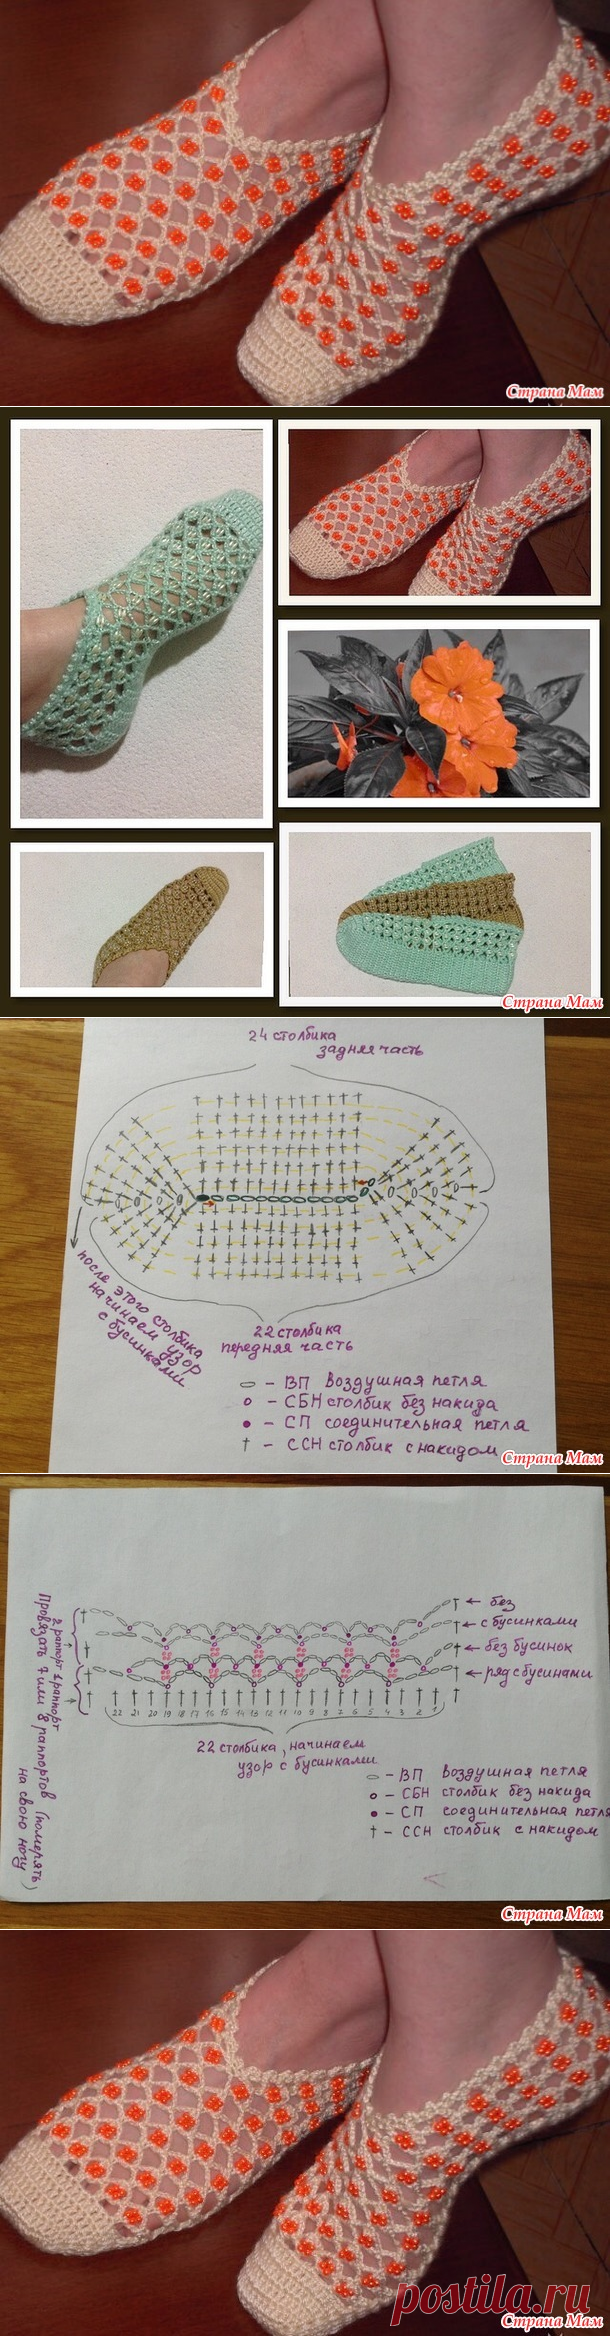 Страна Мам
Страна Мам
24 столбика
задняя часть
после этого столбика
начинаем узор
с бусинками
22 столбика
передняя часть
- ВП воздушная петля
- СБН столбик без накида
- СП соединительная петля
- ССН столбик с накидом
Страна Мам
← без
← с бусинками
← без бусинок
← ряд с бусинами
2 раппорт 1 раппорт
Провязать 7 или 8 раппортов (померять
на свою ногу)
22 21 20 19 18 17 16 15 14 13 12 11 10 9 8 7 6 5 4 3 2 1
22 столбика, начинаем
узор с бусинками
- ВП воздушная петля
- СБН столбик без накида
- СП соединительная петля
- ССН столбик с накидом
Страна Мам
postila.ru
Страна Мам